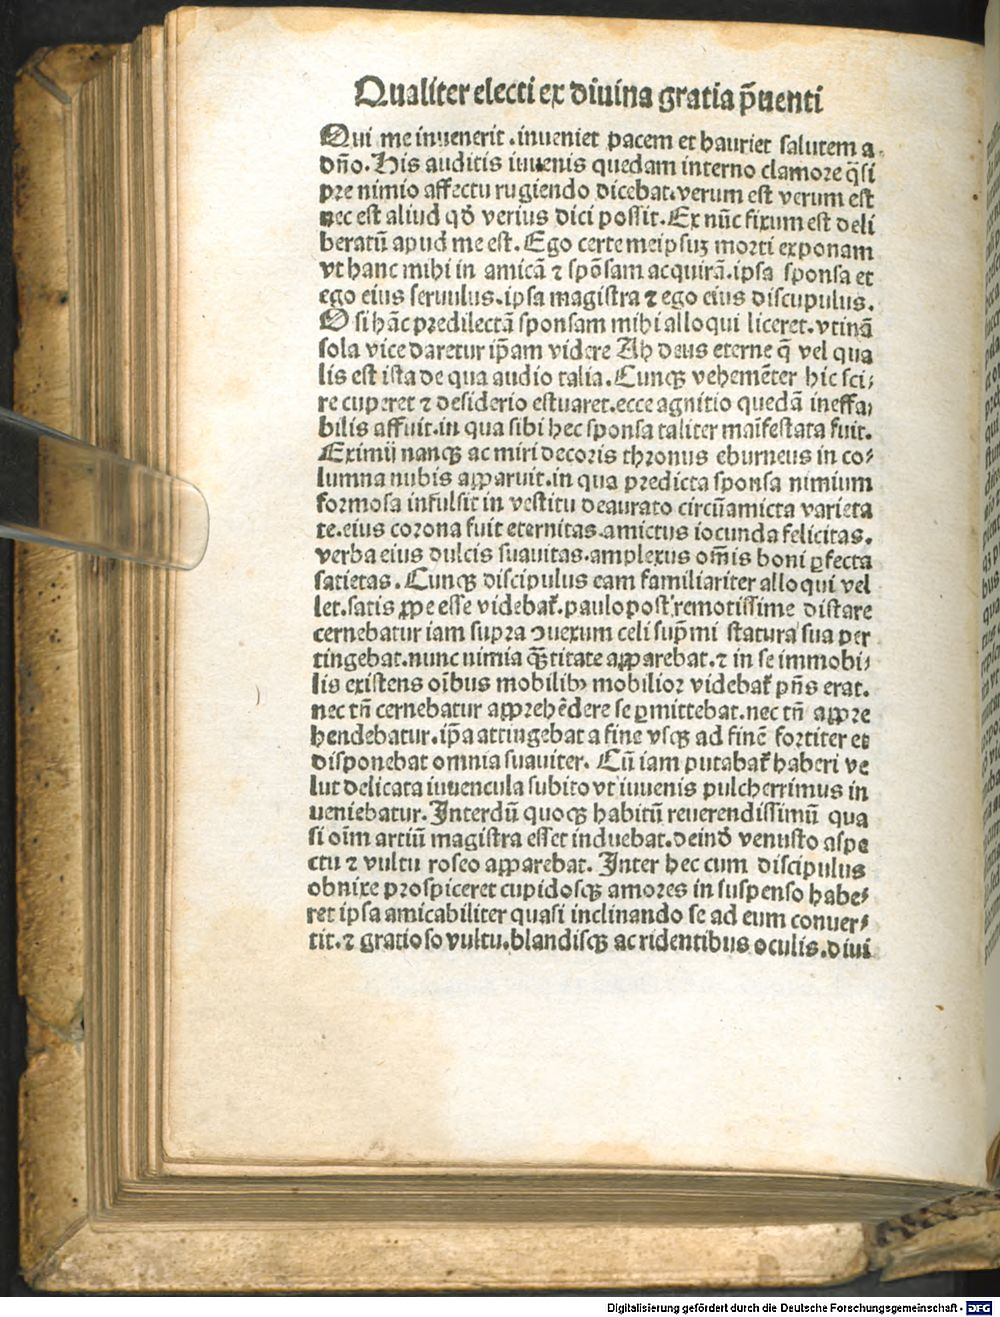 Qualiter electi ex diuina gratia p̄uenti
Qui me inuenerit .inueniet pacem et hauriet salutem a
dn̄o. His auditis iuuenis quedam interno clamore q̄si
pre nimio affectu rugiendo dicebat. verum est verum est
nec est aliud qd̄ verius dici possit. Ex nūc fixum est deli
beratū apud me est. Ego certe meipsuꝫ morti exponam
vt hanc mihi in amicā ⁊ spōsam acquirā. ipsa sponsa et
ego eius seruulus. ipsa magistra ⁊ ego eius discupulus.
O si hāc predilectā sponsam mihi alloqui liceret. vtinā
sola vice daretur ip̄am videre Ah deus eterne q̄ vel qua
lis est ista de qua audio talia. Cunqꝫ vehemēter hic sci⸗
re cuperet ⁊ desiderio estuaret. ecce agnitio quedā ineffa⸗
bilis affuit. in qua sibi hec sponsa taliter maīfestata fuit.
Eximij nanqꝫ ac miri decoris thronus eburneus in co⸗
lumna nubis apparuit. in qua predicta sponsa nimium
formosa infulsit in vestitu deaurato circūamicta varieta
te. eius corona fuit eternitas. amictus iocunda felicitas.
verba eius dulcis suauitas. amplexus om̄is boni ꝑfecta
satietas. Cunqꝫ discipulus eam familiariter alloqui vel
let. satis ꝓpe esse videbat᷑. paulopost remotissime distare
cernebatur iam supra ꝯuexum celi sup̄mi statura sua per
tingebat. nunc nimia q̄titate apparebat. ⁊ in se immobi⸗
lis existens oībus mobilibꝰ mobilior videbat᷑ pn̄s erat.
nec tn̄ cernebatur apprehēdere se ꝑmittebat. nec tn̄ appre
hendebatur. ip̄a attingebat a fine vsqꝫ ad finē fortiter et
disponebat omnia suauiter. Cū iam putabat᷑ haberi ve
lut delicata iuuencula subito vt iuuenis pulcherrimus in
ueniebatur. Interdū quoqꝫ habitū reuerendissimū qua
si oīm artiū magistra esset induebat. deinď venusto aspe
ctu ⁊ vultu roseo apparebat. Inter hec cum discipulus
obnixe prospiceret cupidosqꝫ amores in suspenso habe⸗
ret ipsa amicabiliter quasi inclinando se ad eum conuer⸗
tit. ⁊ gratioso vultu. blandisqꝫ ac ridentibus oculis. diui
Digitalisierung gefördert durch die Deutsche Forschungsgemeinschaft - DFG